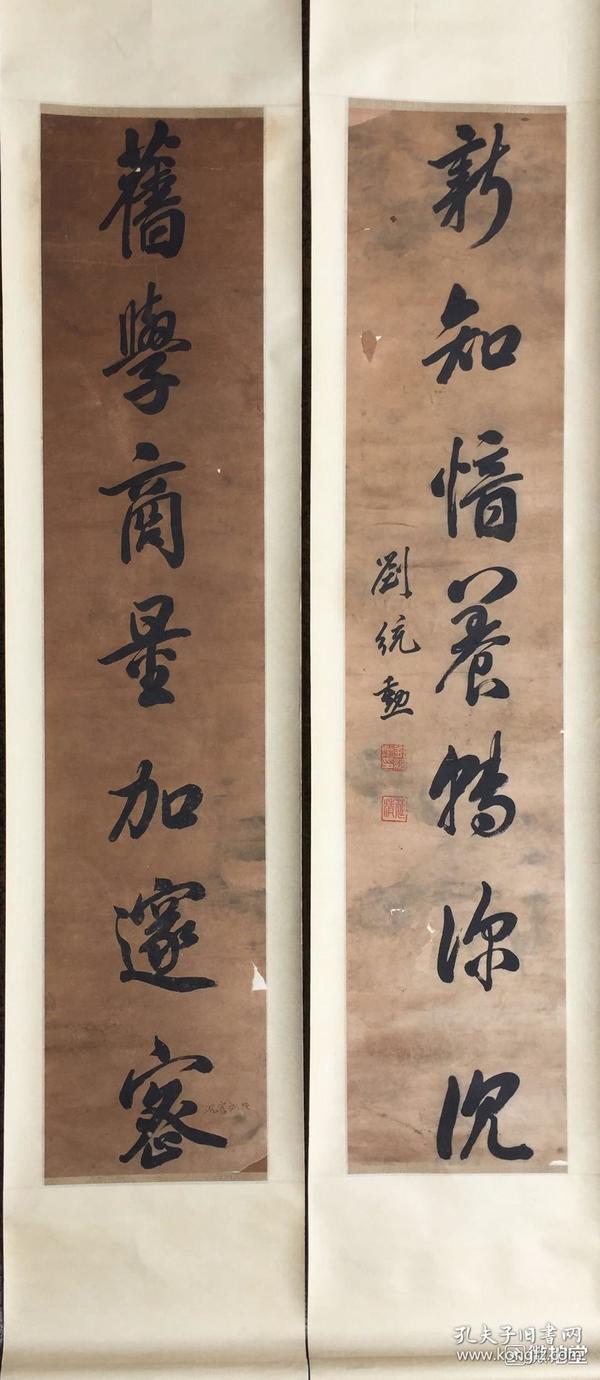 舊學商量加邃密
新知培養轉深沉
劉統勳
孔夫子旧书网
微拍堂